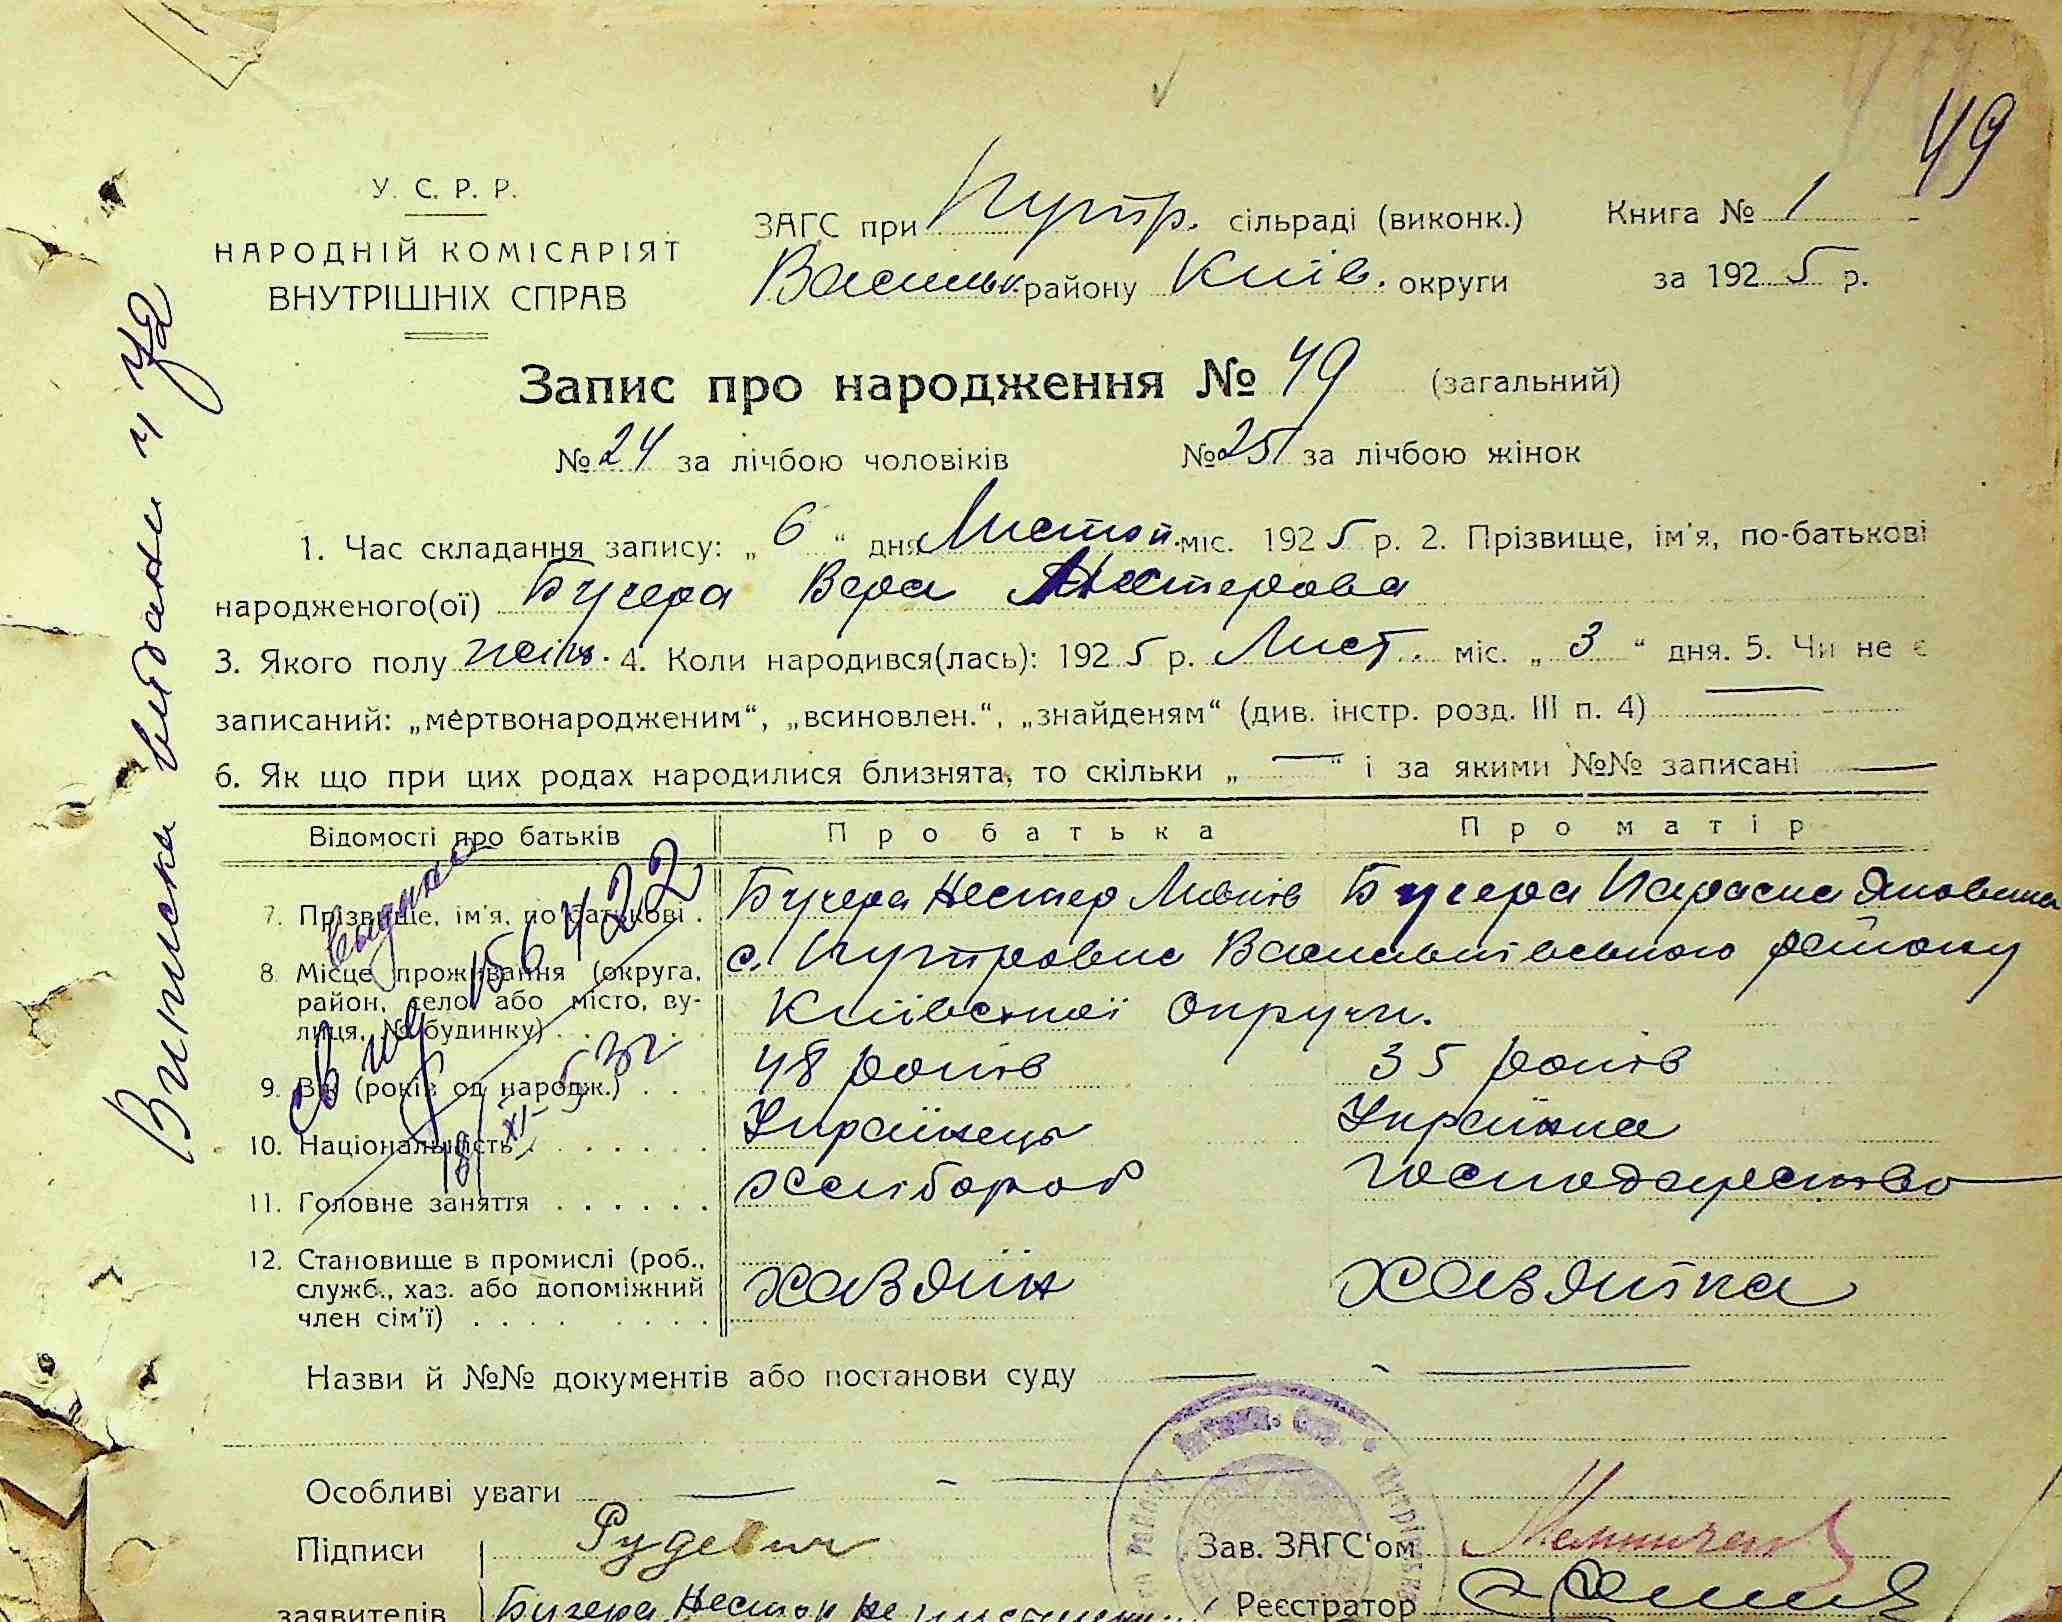 49
У. С. Р. Р.
НАРОДНІЙ КОМІСАРІЯТ
ВНУТРІШНІХ СПРАВ
ЗАГС при Путр. сільраді (виконк.) Книга № 1
Васильк. району Київ. округи за 1925 р.
Запис про народження № 49 (загальний)
№ 24 за лічбою чоловіків № 25 за лічбою жінок
1. Час складання запису: „ 6 “ дня Листоп. міс. 1925 р. 2. Прізвище, ім'я, по-батькові
народженого(ої) Бугера Вера Нестерова
3. Якого полу жін. 4. Коли народився(лась): 1925 р. Лист. міс. „ 3 “ дня. 5. Чи не є
записаний: „мертвонародженим“, „всиновлен.“, „знайденям“ (див. інстр. розд. III п. 4) —
6. Як що при цих родах народилися близнята, то скільки „ — “ і за якими №№ записані —
Відомості про батьків Про батька Про матір
7. Прізвище, ім'я, по батькові . Бугера Нестер Бугера Параска Яковина
8. Місце проживання (округа, с. Путровка Васильківського району
район, село або місто, ву-
лиця, № будинку) . . . . Київської Округи.
9. Вік (років од народж.) . . . 48 років 35 років
10. Національність . . . . . . . Українець Українка
11. Головне заняття . . . . . . Хлібороб господарство
12. Становище в промислі (роб.,
служб., хаз. або допоміжний хазяїн хазяйка
член сім'ї) . . . . . . . .
Назви й №№ документів або постанови суду — —
Особливі уваги — —
Підписи Рудевич Зав. ЗАГС'ом
заявителів Бугера Нестор Реєстратор
Виписки видани